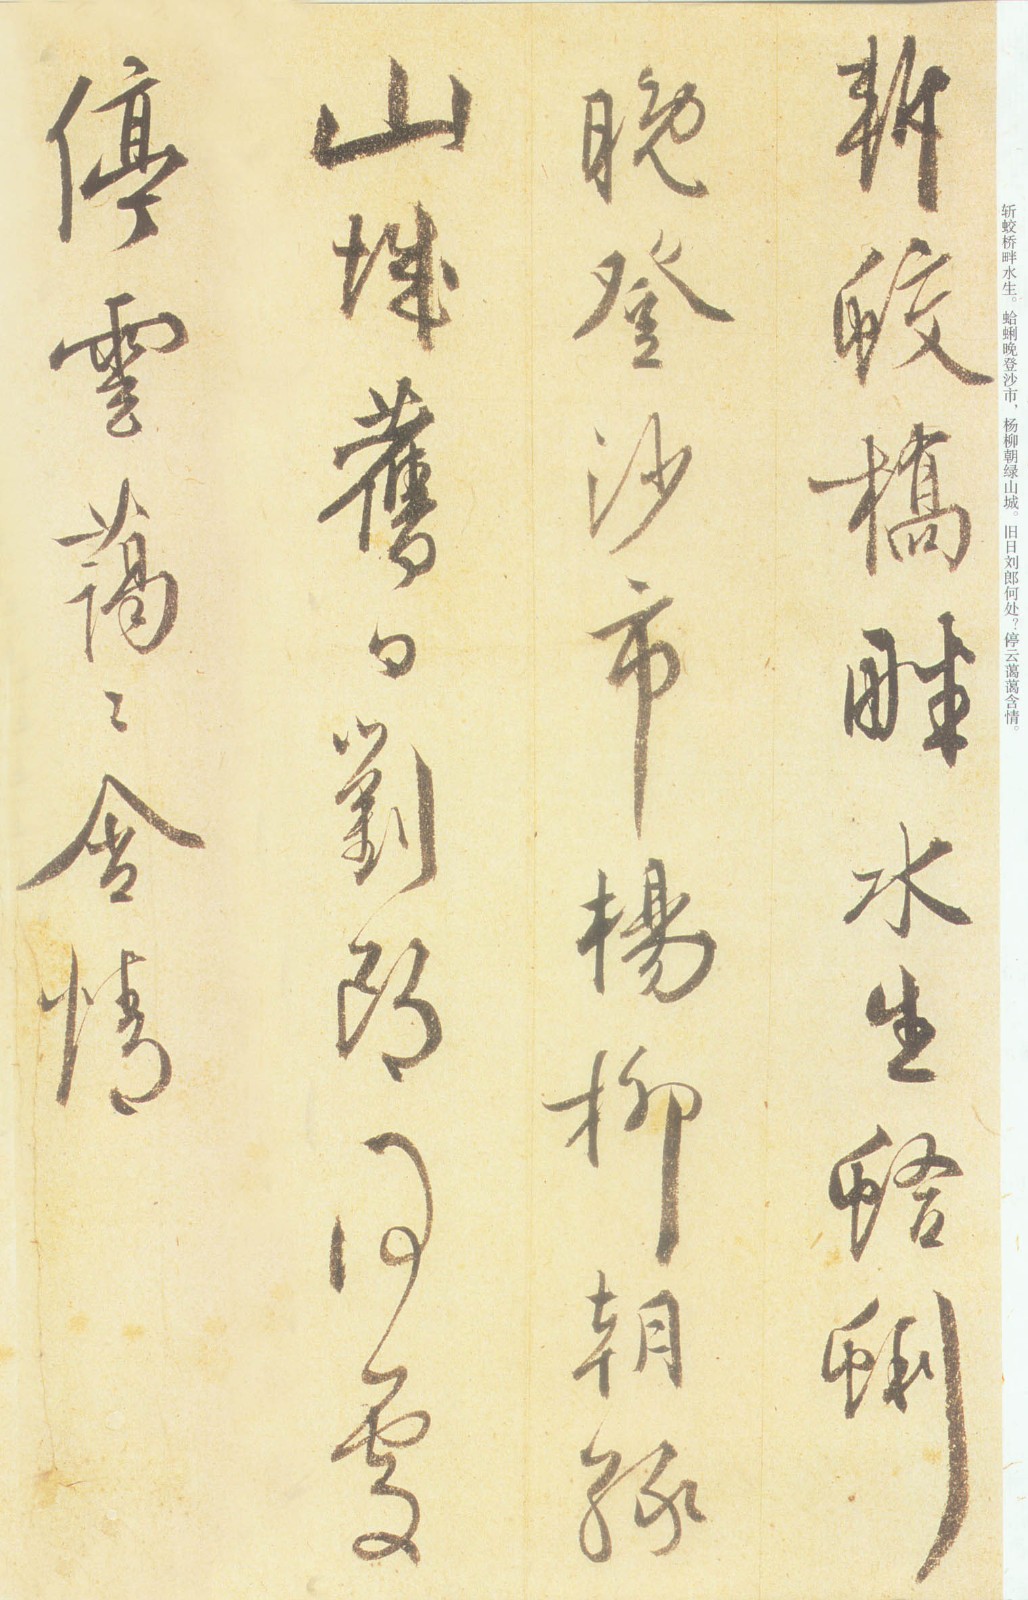 斬蛟橋畔水生蛤蜊
晚登沙市楊柳朝綠
山城舊日劉郎何處
停雲藹〻含情
斩蛟桥畔水生。蛤蜊晚登沙市，杨柳朝绿山城。旧日刘郎何处？停云蔼蔼含情。